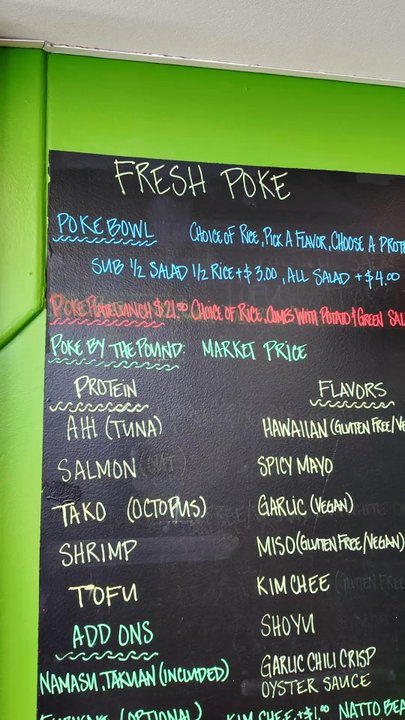 FRESH POKE
POKE BOWL CHOICE OF RICE, PICK A FLAVOR, CHOOSE A PROTE
SUB 1/2 SALAD 1/2 RICE +$3.00, ALL SALAD +$4.00
POKE PLATE LUNCH $21.00 CHOICE OF RICE, COMES WITH POTATO & GREEN SAL
POKE BY THE POUND: MARKET PRICE
PROTEIN
AHI (TUNA)
SALMON
TAKO (OCTOPUS)
SHRIMP
TOFU
ADD ONS
NAMASU, TAKUAN (INCLUDED)
FURIKAKE (OPTIONAL)
FLAVORS
HAWAIIAN (GLUTEN FREE/VE
SPICY MAYO
GARLIC (VEGAN)
MISO (GLUTEN FREE/VEGAN)
KIM CHEE (GLUTEN FREE
SHOYU
GARLIC CHILI CRISP
OYSTER SAUCE
KIM CHEE +$1.00 NATTO BEA